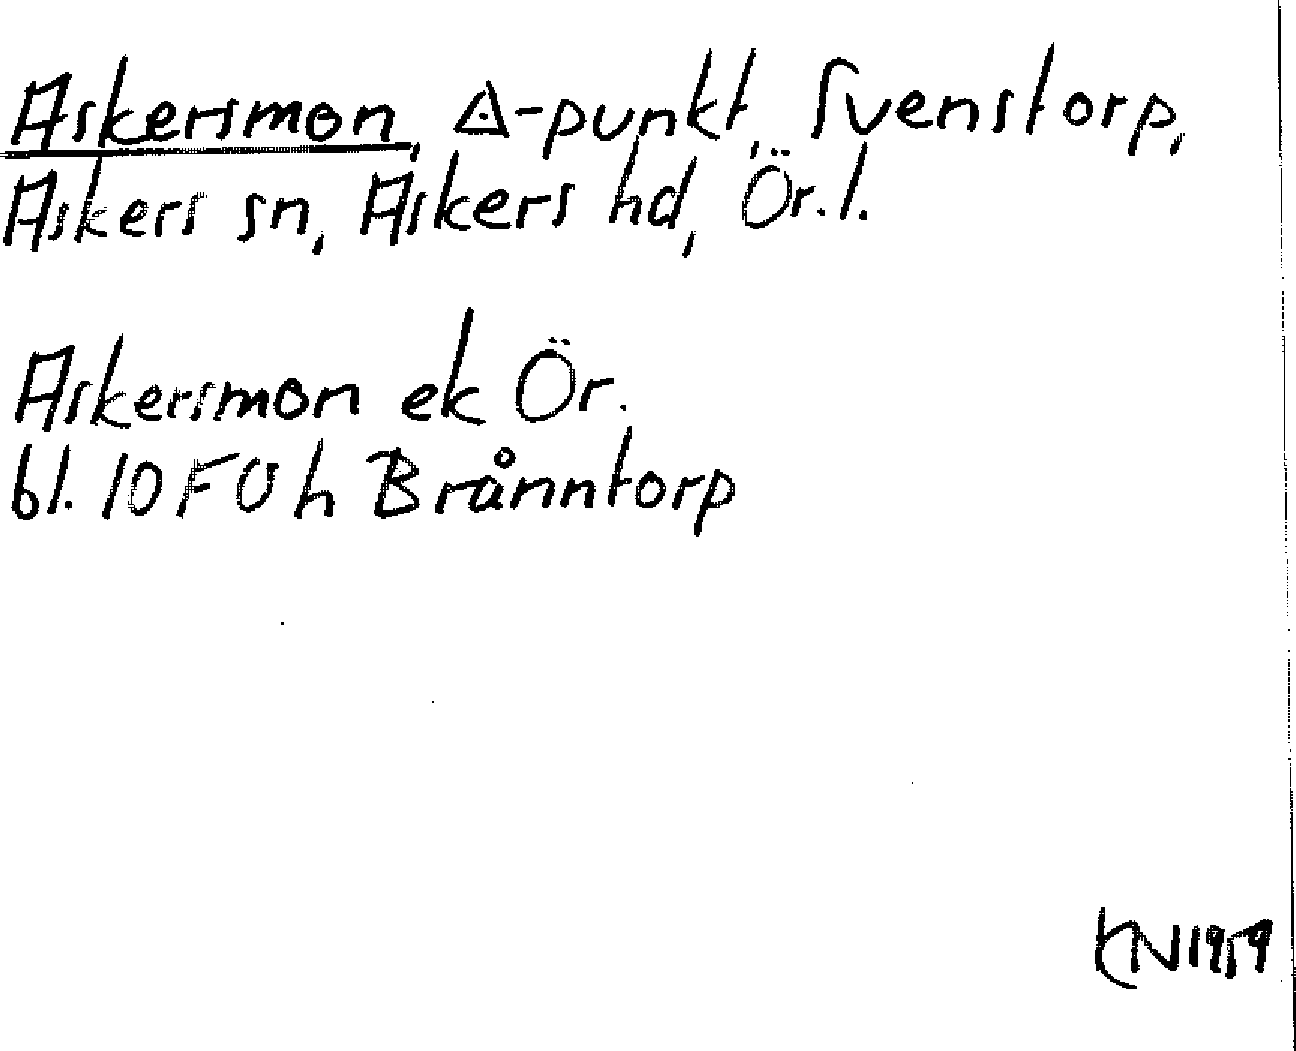 Askersmon, ◬-punkt, Svenstorp,
Askers sn, Askers hd, Ör. l.
Askersmon ek Ör.
bl. 10F0h Brånntorp